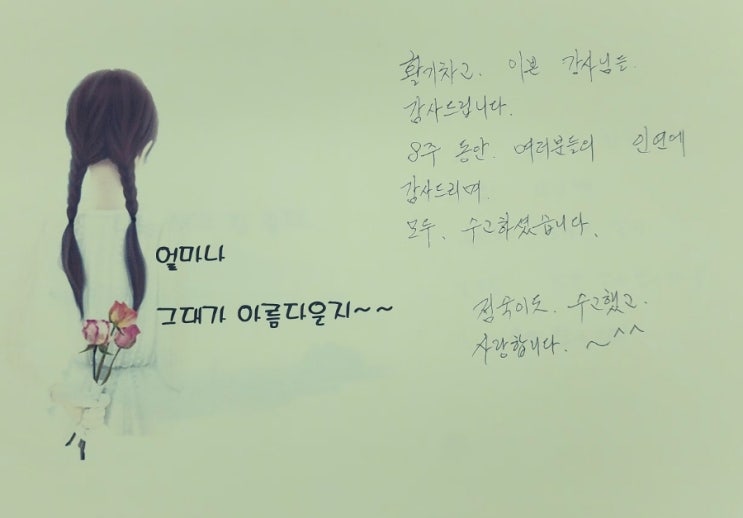 얼마나
그대가 아름다운지~~
활기차고. 이쁜 강사님들
감사드립니다.
8주 동안. 여러분들의 인연에
감사드리며.
모두. 수고하셨습니다.
점숙이도. 수고했고.
사랑합니다. ~^^